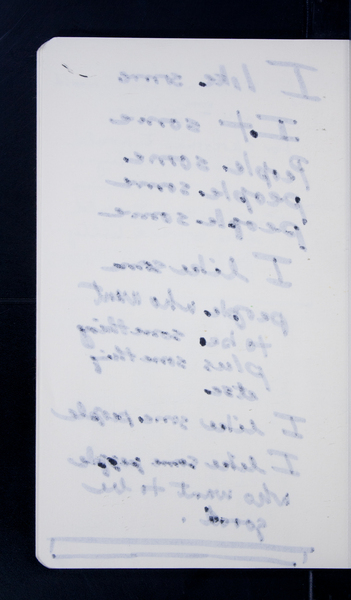 I like some
I + some
People some.
people some
people some
I like som
people who want
to be something
plus something
else.
I like some people
I like some people
who want to be
good.